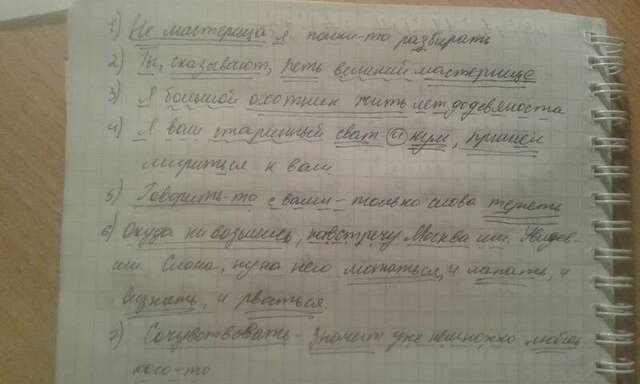 1) Не мастерица я полки-то разбирать
2) Ты, сказывают, петь великий мастерище
3) Я большой охотник жить лет до девяноста
4) Я ваш старинный сват и кум, пришел
мириться к вам
5) Говорить-то с вами - только слова терять
6) Откуда ни возьмись, навстречу Моська им. Увидев-
ши Слона, ну на него метаться, и лаять, и
визжать, и рваться.
7) Сочувствовать - значит уже немножко любить
кого-то